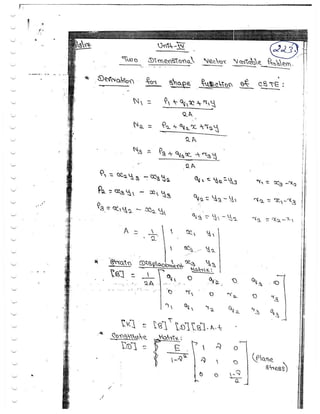 Unit-IV
223
Two Dimensional Vector Variable Problem.
* Derivation for shape function of CSTE:
N1 = P1 + q1x + r1y / 2A
N2 = P2 + q2x + r2y / 2A
N3 = P3 + q3x + r3y / 2A
P1 = x2y3 - x3y2 q1 = y2-y3 r1 = x3-x2
P2 = x3y1 - x1y3 q2 = y3-y1 r2 = x1-x3
P3 = x1y2 - x2y1 q3 = y1-y2 r3 = x2-x1
A = 1/2 | 1 x1 y1
1 x2 y2
1 x3 y3 |
* Strain Displacement Matrix:
[B] = 1/2A [ q1 0 q2 0 q3 0
0 r1 0 r2 0 r3
r1 q1 r2 q2 r3 q3 ]
[K] = [B]T [D][B].A.t
* Constitute Matrix:
[D] = E/1-ν² [ 1 ν 0
ν 1 0
0 0 1-ν/2 ] (Plane stress)